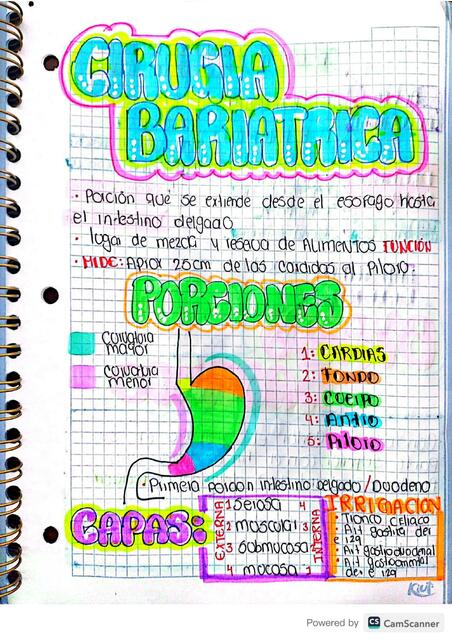 CIRUGIA
BARIATRICA
• Porción que se extiende desde el esofago hasta
el intestino delgado
• lugar de mezcla y reseva de Alimentos FUNCIÓN
• MIDE: Apior 25cm de los cardias al Piloro.
PORCIONES
curvatura
mayor
curvatura
menor
1: CARDIAS
2: FONDO
3: CUERPO
4: Antro
5: Piloro
• Primera porcion intestino delgado / Duodeno
CAPAS:
EXTERNA
1 Serosa 4
2 muscular 3
3 Submucosa
4 mucosa 1
INTERNA
IRRIGACION
• Tronco celiaco
• Art gastrica der
e izq
• Art gastroduodenal
• Art gastroomental
der e izq
Powered by CS CamScanner